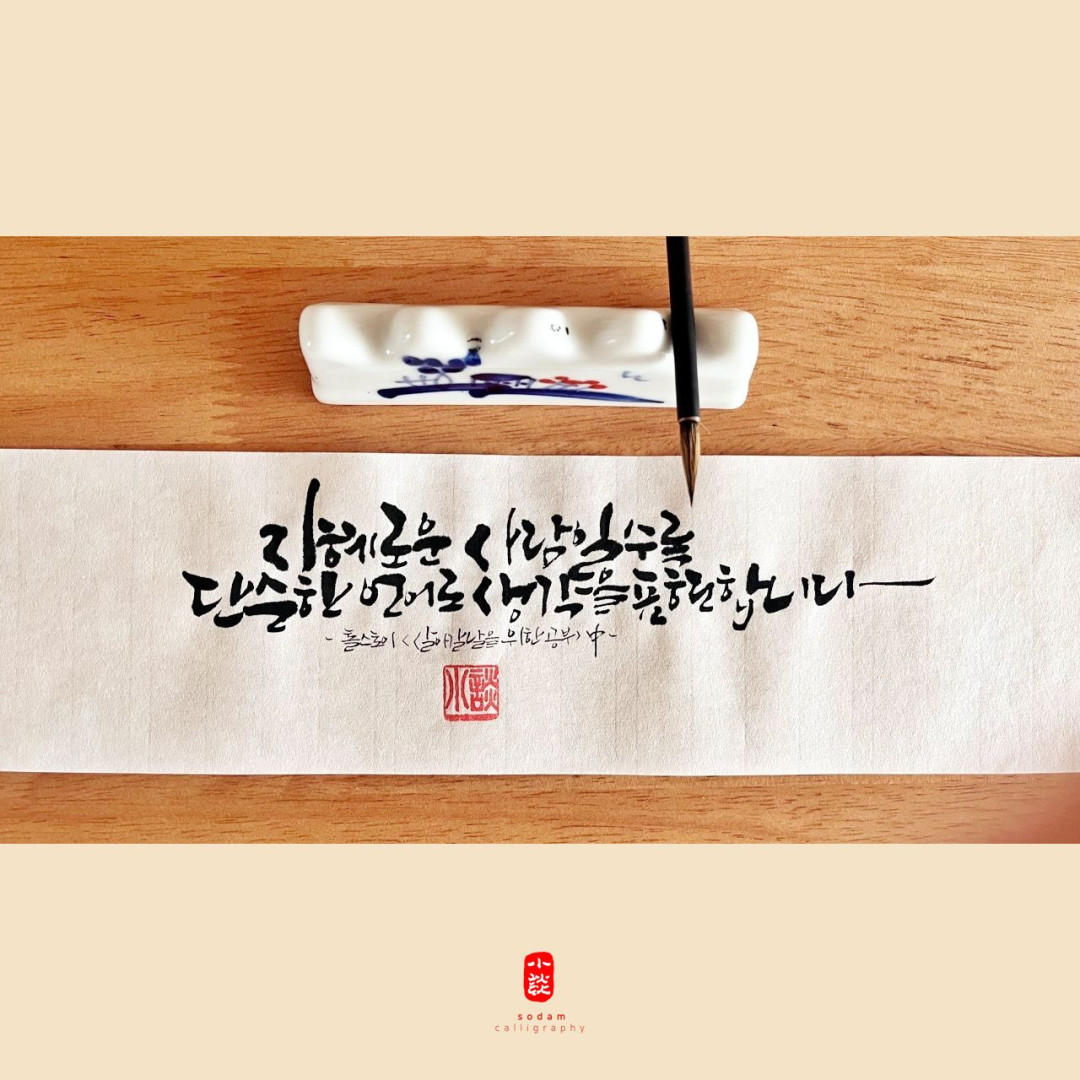 지혜로운 사람일수록
단순한 언어로 생각을 표현합니다
- 톨스토이 <살아갈 날을 위한 공부> 中 -
小談
小談
sodam
calligraphy